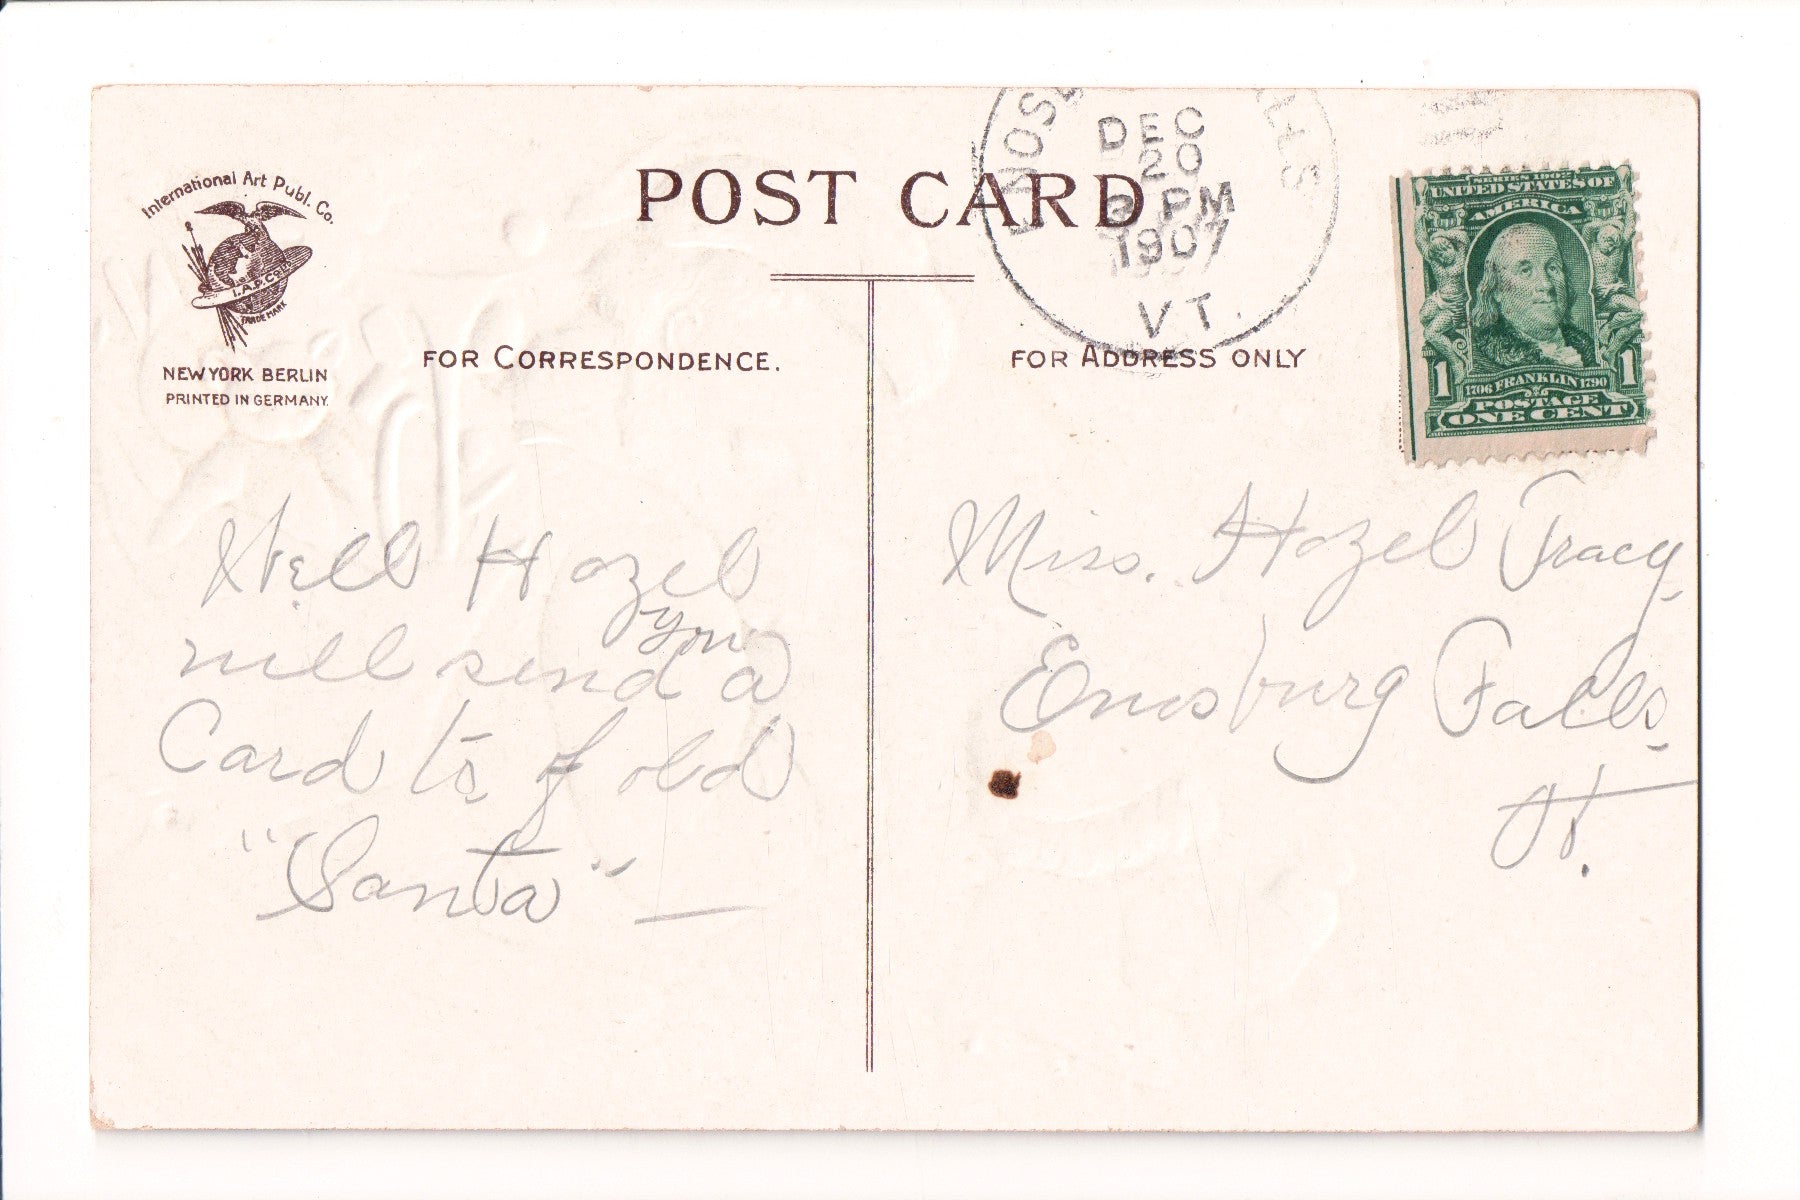 International Art Publ. Co.
I.A.P. Co.
TRADE MARK
NEW YORK BERLIN
PRINTED IN GERMANY.
POST CARD
FOR CORRESPONDENCE.
FOR ADDRESS ONLY
DEC
20
PM
1907
VT.
SERIES 1902
UNITED STATES OF
AMERICA
1 1
1706 FRANKLIN 1790
POSTAGE
ONE CENT
Well Hazel
you
will send a
Card to of old
"Santa" —
Miss. Hazel Tracy
Enosburg Falls
Vt.